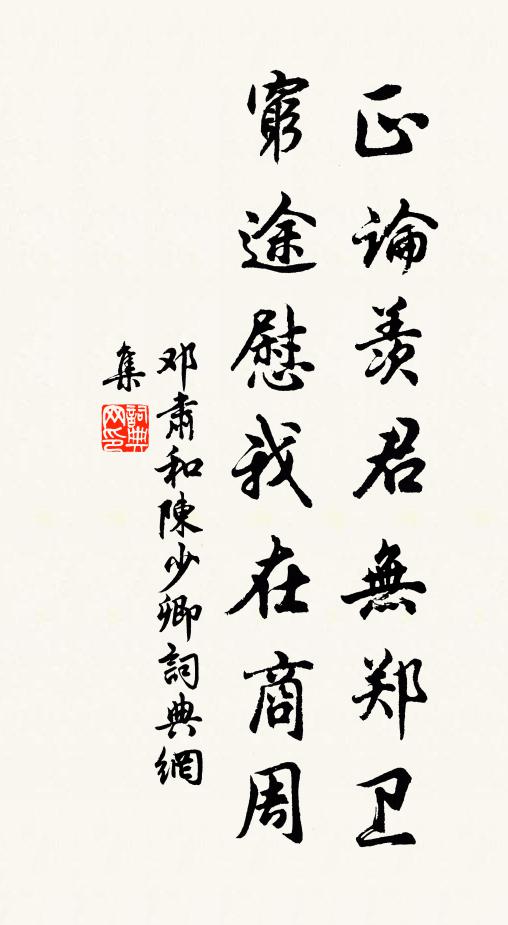 正論羨君無郑卫
窮途慰我在商周
邓肅和陳少卿詞典網
集
詞典
网印